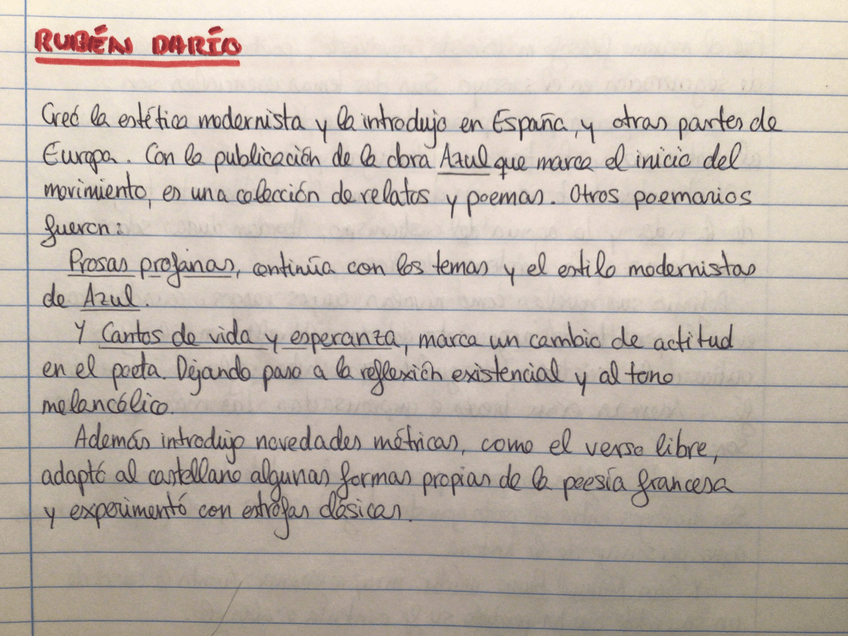 RUBÉN DARÍO
Creó la estética modernista y la introdujo en España, y otras partes de
Europa. Con la publicación de la obra Azul que marca el inicio del
movimiento, es una colección de relatos y poemas. Otros poemarios
fueron:
Prosas profanas, continúa con los temas y el estilo modernistas
de Azul.
Y Cantos de vida y esperanza, marca un cambio de actitud
en el poeta. Dejando paso a la reflexión existencial y al tono
melancólico.
Además introdujo novedades métricas, como el verso libre,
adaptó al castellano algunas formas propias de la poesía francesa
y experimentó con estrofas clásicas.